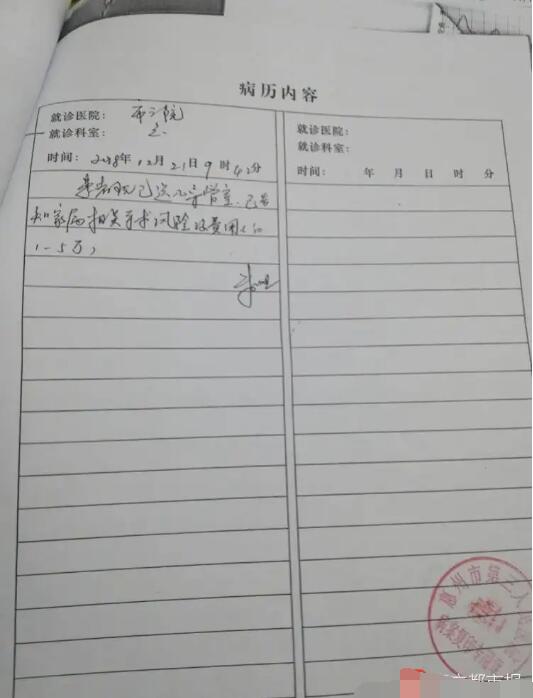 病历内容
就诊医院: 市三院
就诊科室:
时间: 2018年12月21日9时42分
患者现已送心导管室,已告
知家属相关手术风险及费用(
1-5万)
就诊医院:
就诊科室:
时间: 年 月 日 时 分
惠州市第三人
都市报